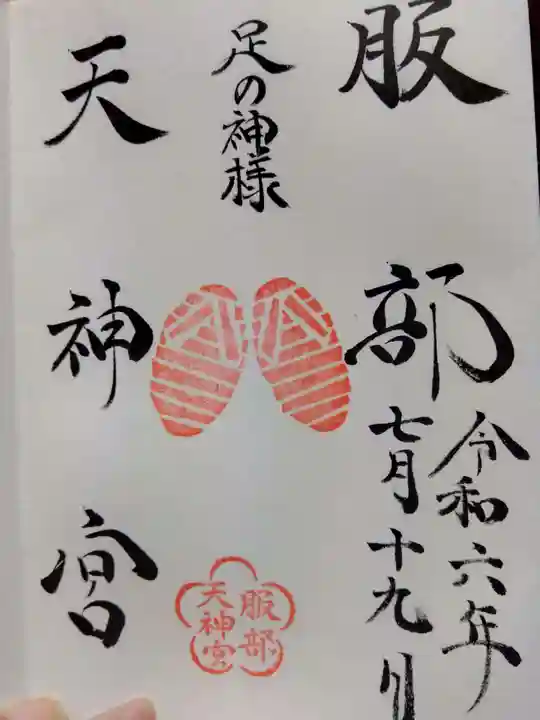 服部
令和六年
七月十九日
足の神様
天神宮
服部
天神宮